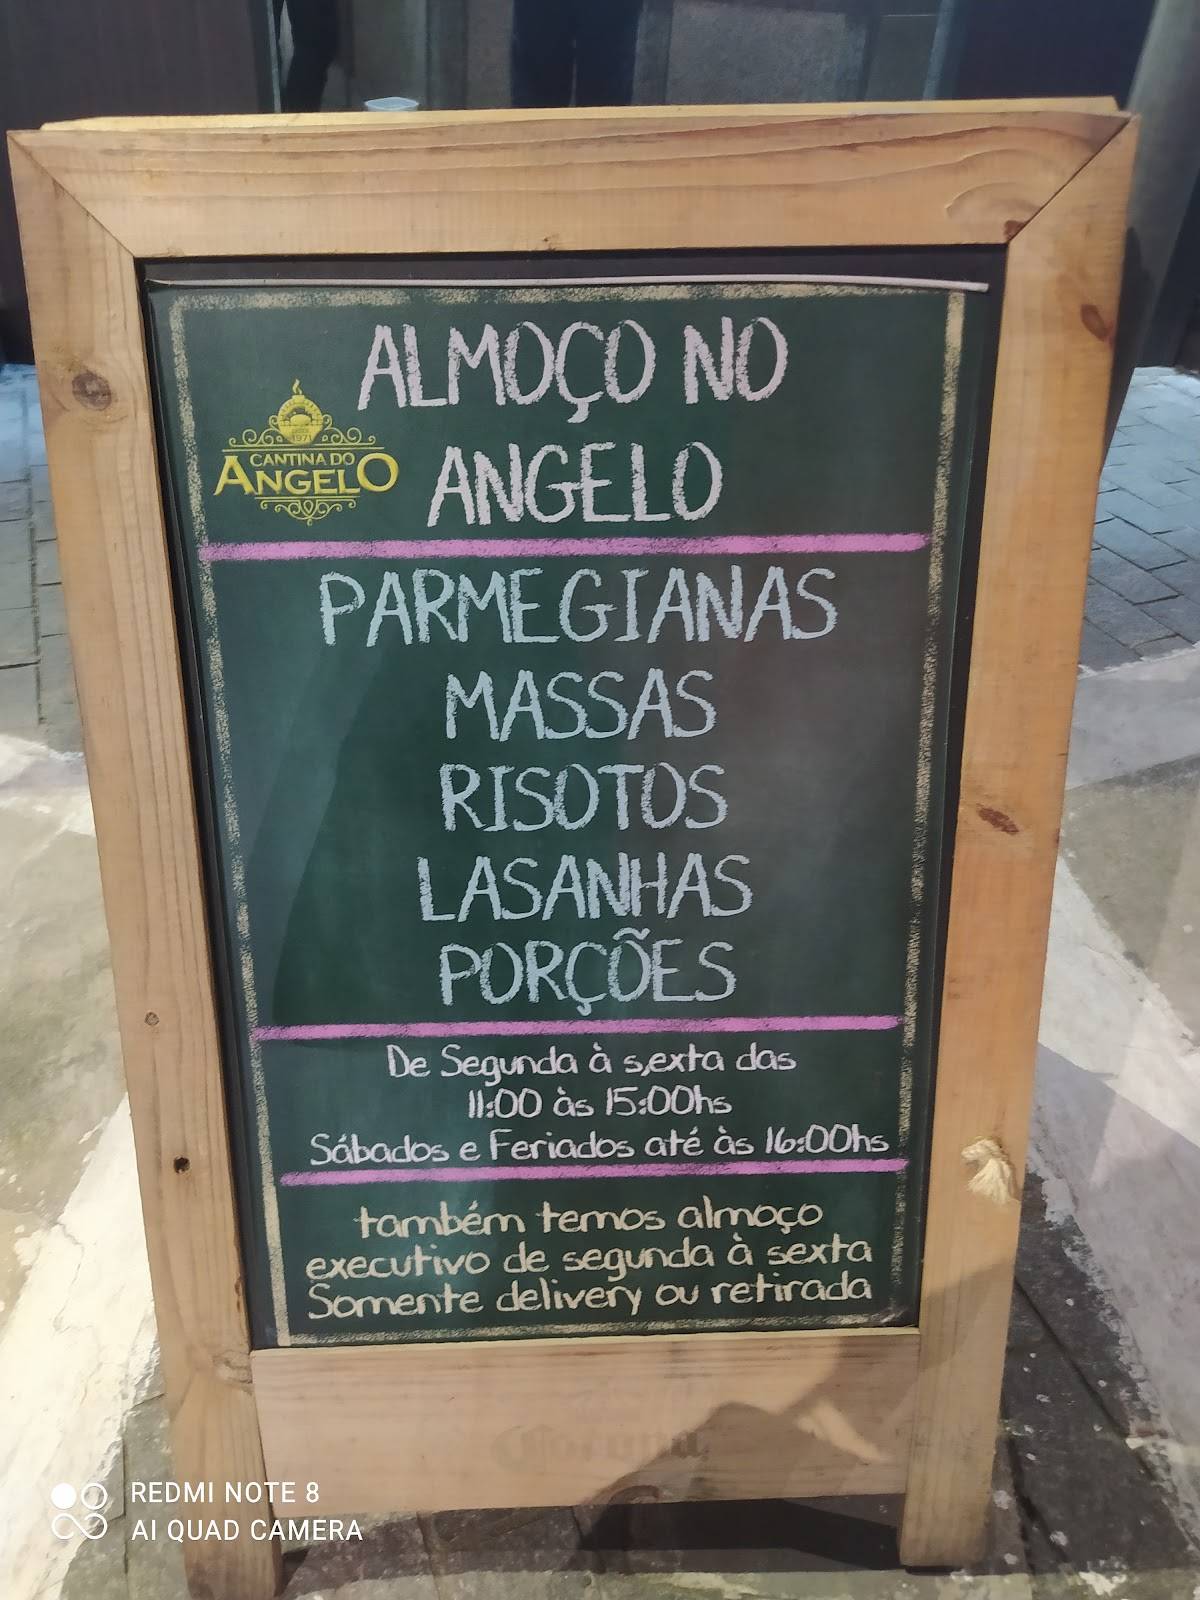 ALMOÇO NO
ANGELO
1971
CANTINA DO
ANGELO
PARMEGIANAS
MASSAS
RISOTOS
LASANHAS
PORÇÕES
De Segunda à s,exta das
11:00 às 15:00hs
Sábados e Feriados até às 16:00hs
também temos almoço
executivo de segunda à sexta
Somente delivery ou retirada
Corona
REDMI NOTE 8
AI QUAD CAMERA